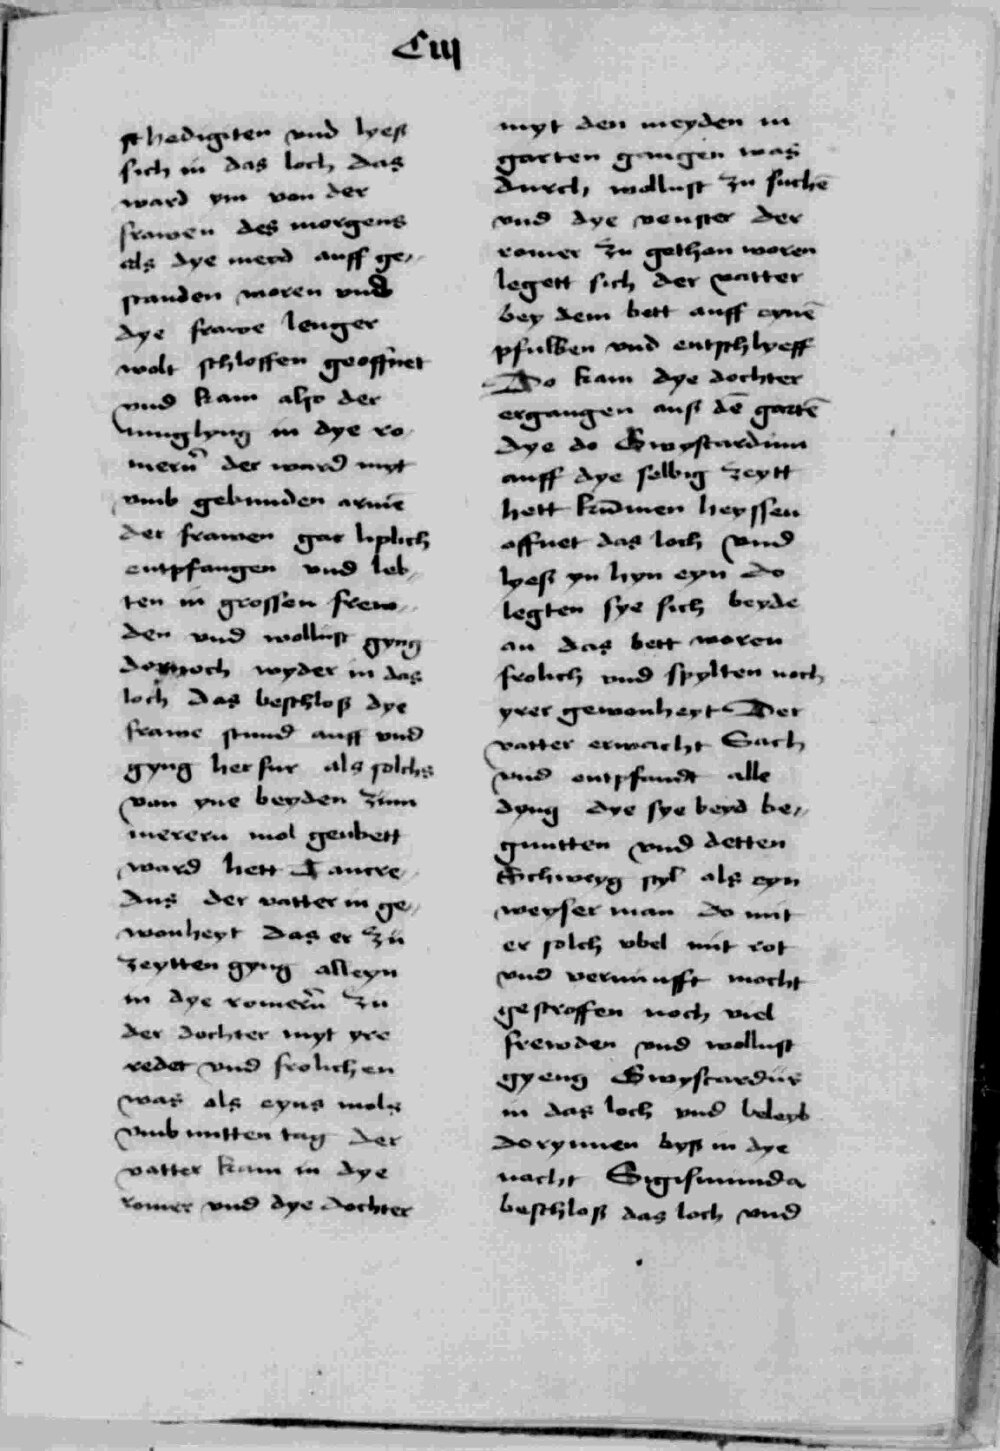 Ciij
schedigiten vnd lyeß
sich in das loch das
ward ym von der
frawen des morgens
als dye meyd auff ge„
standen woren vnd
dye frawe lenger
wolt schloffen geoffnet
vnd kam also der
iunglyng in dye ro„
merñ der ward myt
vmb gebunden armē
der frawen gar liplich
entpfangen vnd leb„
ten in grossen frew„
den vnd wollust gyng
dornoch wyder in das
loch das beschloß dye
frawe stund auff vnd
gyng her fur als solchs
von yne beyden zum
merern mol geubett
ward hett Tancre„
dus der vatter in ge„
wonheyt das er zu
zeytten gyng alleyn
in dye romerñ zu
der dochter myt yre
redet vnd frolichen
was als eyns mols
vmb mitten tag der
vatter kam in dye
romer vnd dye dochter
myt den meyden in
garten gangen was
durch wollust zu suchē
vnd dye venster der
romer zu gethan woren
legett sich der vatter
bey dem bett auff eynē
pfulben vnd entschlyeff
Do kam dye dochter
ergangen auß dē gartē
dye do Gwyscardum
auff dye selbig zeytt
hett kūmen heyssen
offnet das loch vnd
lyeß yn hyn eyn do
legten sye sich beyde
an das bett woren
frolich vnd spylten noch
yrer gewonheyt Der
vatter erwacht Sach
vnd entpfandt alle
dyng dye sye beyd be„
guntten vnd detten
Schweyg styl als eyn
weyser man do mit
er solch vbel mit rot
vnd vernunfft mocht
gestroffen noch viel
frewden vnd wollust
gyeng Gwyscardus
in das loch vnd beleyb
dorynnen byß in dye
nacht Sigismunda
beschloß das loch vnd